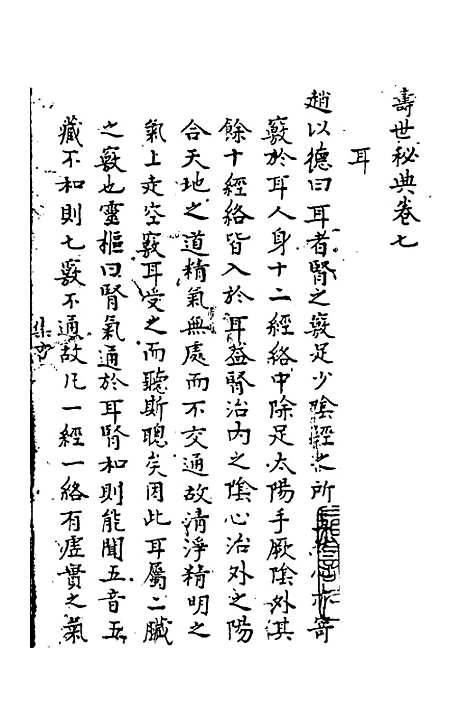 壽世秘典卷七
耳
趙以德曰耳者腎之竅足少陰經之所
寄
竅於耳人身十二經絡中除足太陽手厥陰外其
餘十經絡皆入於耳益腎治內之陰心治外之陽
合天地之道精氣無處而不交通故清淨精明之
氣上走空竅耳受之而聽斯聰矣因此耳屬二臟
之竅也靈樞曰腎氣通於耳腎和則能聞五音五
藏不和則七竅不通故凡一經一絡有虛實之氣
集方